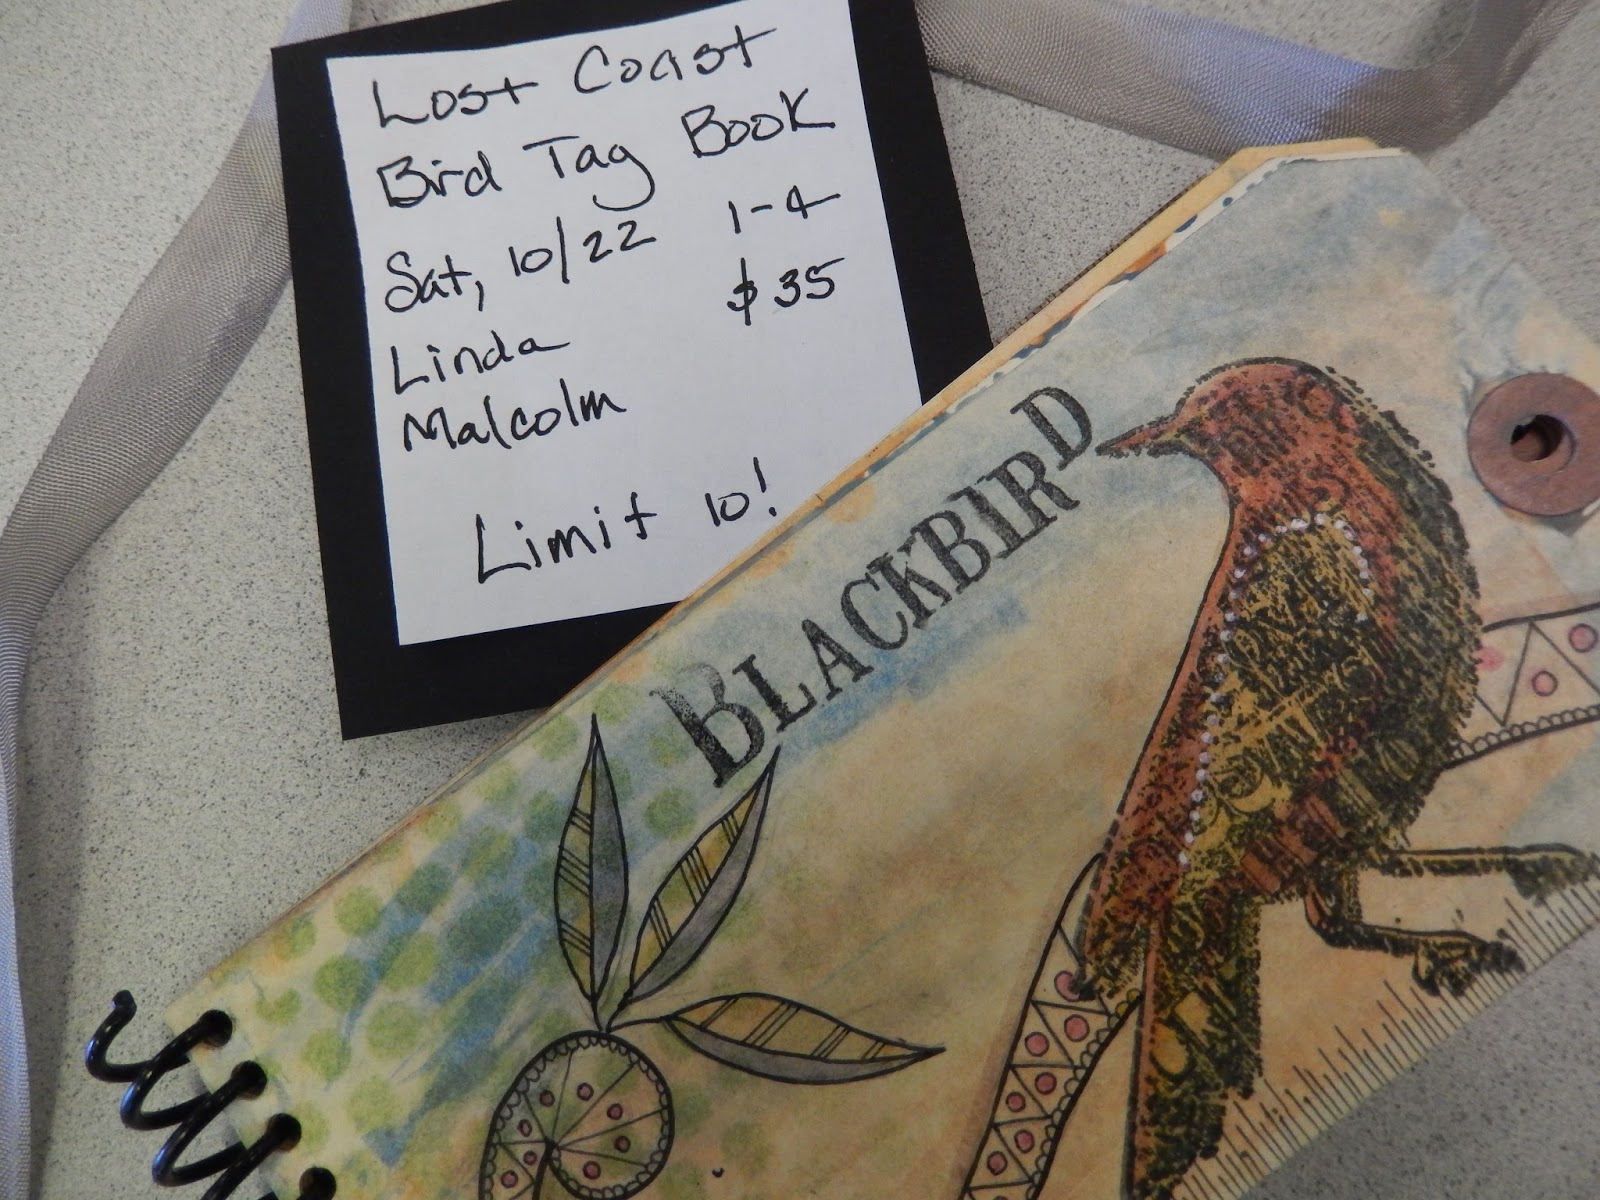 Lost Coast
Bird Tag Book
Sat, 10/22 1-4
Linda $35
Malcolm
Limit 10!
BLACKBIRD